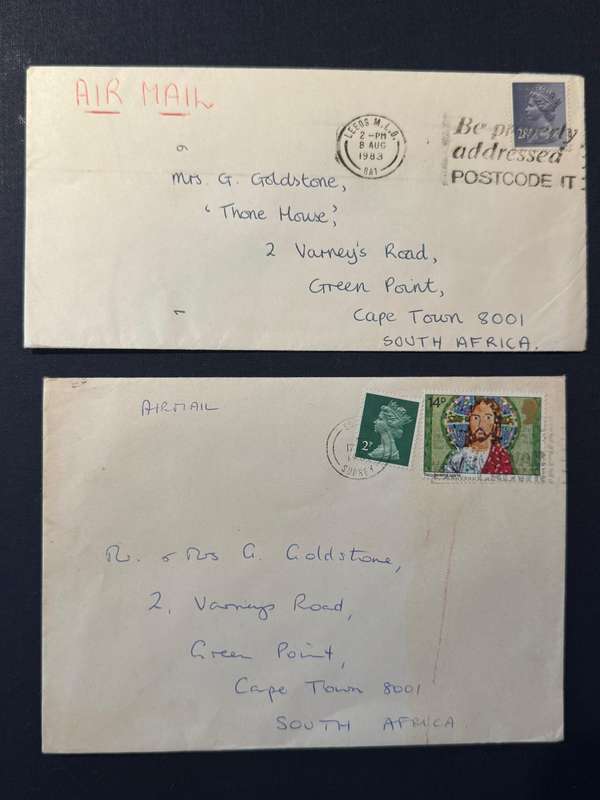 AIR MAIL
LEEDS M.L.O.
2-PM
8 AUG
1983
Be properly
addressed
POSTCODE IT
Mrs. G. Goldstone,
'Thone House',
2 Varney's Road,
Green Point,
Cape Town 8001
SOUTH AFRICA.
AIRMAIL
2P
14P
17
SURREY
Mr. & Mrs G. Goldstone,
2, Varneys Road,
Green Point,
Cape Town 8001
SOUTH AFRICA.